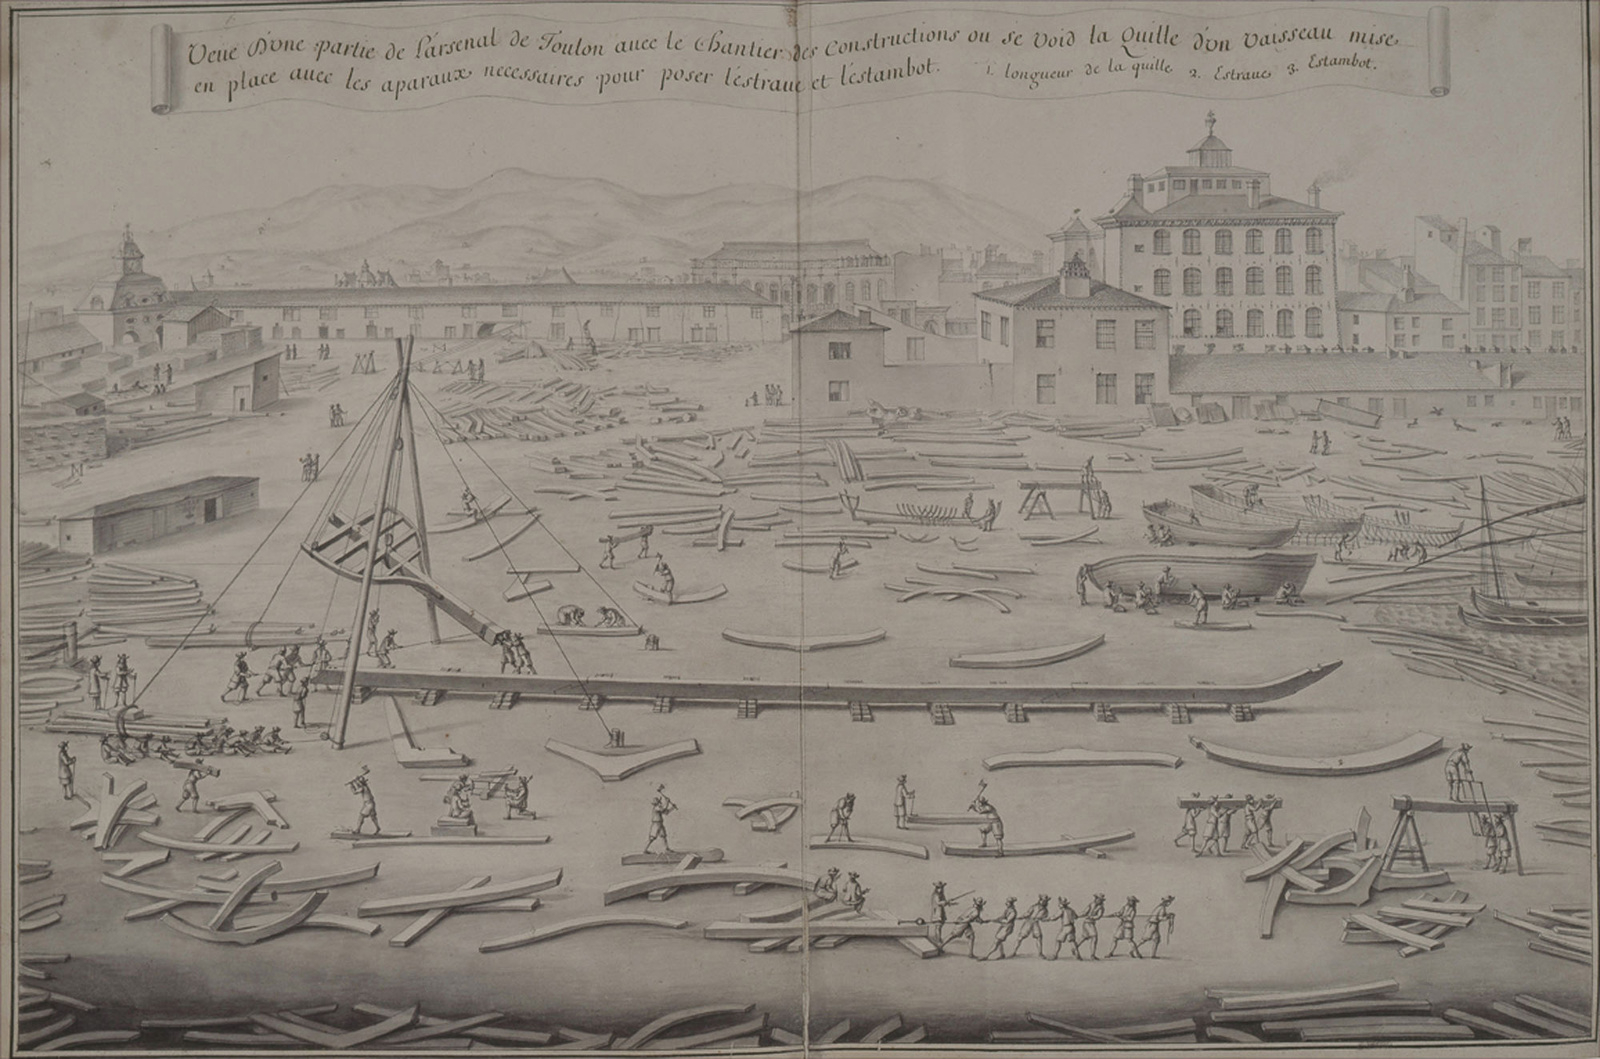 Veüe D'vne partie de L'arsenal de Toulon auec le Chantier des Constructions ou se void la Quille d'vn vaisseau mise
en place auec les aparaux necessaires pour poser l'estraue et l'estambot. 1. longueur de la quille 2. Estraue 3. Estambot.